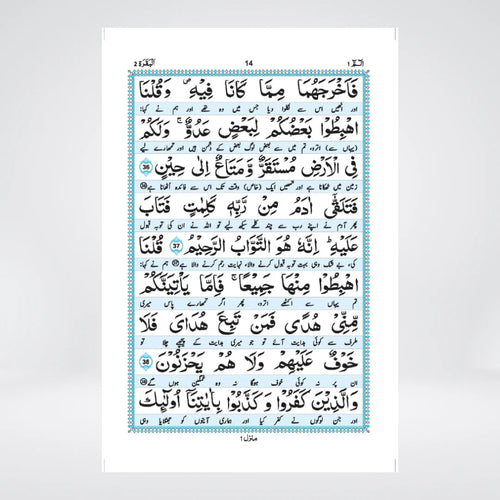 الٓمّٓ ۱ 14 اَلْبَقَرَة ۲
فَاَخْرَجَهُمَا مِمَّا كَانَا فِيْهِ ۪ وَقُلْنَا
اور انھیں اس سے نکلوا دیا جس میں وہ تھے اور ہم نے کہا:
اهْبِطُوْا بَعْضُكُمْ لِبَعْضٍ عَدُوٌّ ۚ وَلَكُمْ
(یہاں سے) اترو، تم میں سے بعض لوگ بعض کے دشمن ہیں اور تمھارے لیے
فِي الْاَرْضِ مُسْتَقَرٌّ وَّمَتَاعٌ اِلٰى حِيْنٍ 36
زمین میں ٹھکانا ہے اور تمھیں ایک (خاص) وقت تک اس سے فائدہ اٹھانا ہے
فَتَلَقّٰٓى اٰدَمُ مِنْ رَّبِّهٖ كَلِمٰتٍ فَتَابَ
پھر آدم نے اپنے رب سے چند کلمے سیکھ لیے تو اللہ نے ان کی توبہ قبول
عَلَيْهِ ۭ اِنَّهٗ هُوَ التَّوَّابُ الرَّحِيْمُ 37 قُلْنَا
کی، بے شک وہی بہت توبہ قبول کرنے والا، نہایت رحم کرنے والا ہے ہم نے کہا:
اهْبِطُوْا مِنْهَا جَمِيْعًا ۚ فَاِمَّا يَاْتِيَنَّكُمْ
تم یہاں سے اکٹھے اترو، پھر اگر تمھارے پاس میری
مِّنِّيْ هُدًى فَمَنْ تَبِعَ هُدَايَ فَلَا
طرف سے کوئی ہدایت آئے تو جو میری ہدایت کے پیچھے چلا تو
خَوْفٌ عَلَيْهِمْ وَلَا هُمْ يَحْزَنُوْنَ 38
ان پر نہ کوئی خوف ہوگا نہ وہ غمگین ہوں گے
وَالَّذِيْنَ كَفَرُوْا وَكَذَّبُوْا بِاٰيٰتِنَآ اُولٰٓئِكَ
اور جن لوگوں نے کفر کیا اور ہماری آیتوں کو جھٹلایا وہی
منزل ۱